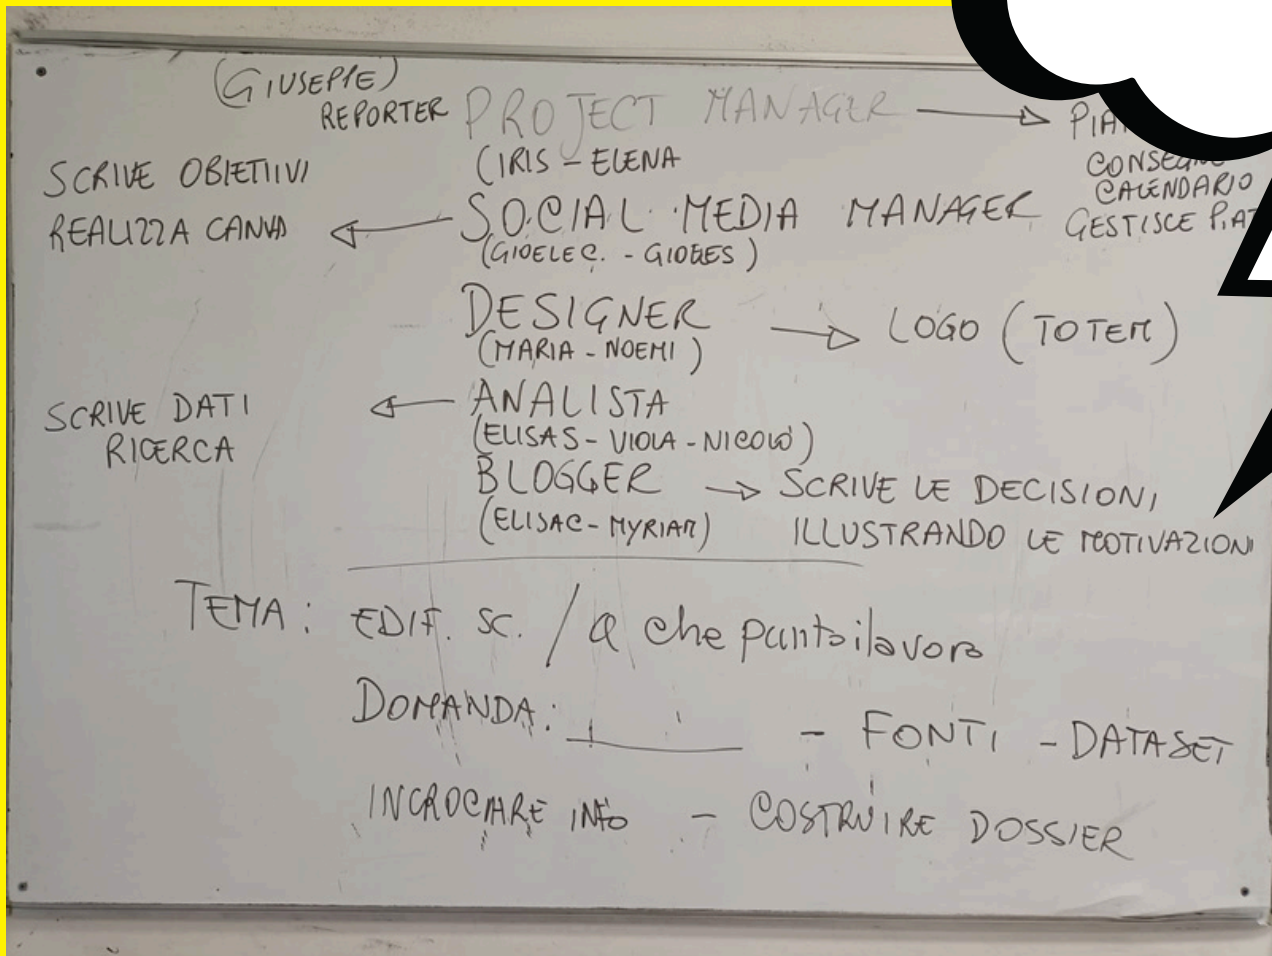 (GIUSEPPE)
REPORTER PROJECT MANAGER
(IRIS - ELENA
CONSEGNE
CALENDARIO
GESTISCE
SCRIVE OBIETTIVI
REALIZZA CANVA
SOCIAL MEDIA MANAGER
(GIOELE C. - GIOELE S)
DESIGNER
(MARIA - NOEMI)
LOGO (TOTEM)
SCRIVE DATI
RICERCA
ANALISTA
(ELISA S - VIOLA - NICOLÒ)
BLOGGER
(ELISA C - MYRIAM)
SCRIVE LE DECISIONI,
ILLUSTRANDO LE MOTIVAZIONI
TEMA: EDIF. SC. / a che punto il lavoro
DOMANDA: ________ - FONTI - DATASET
INCROCIARE INFO - COSTRUIRE DOSSIER